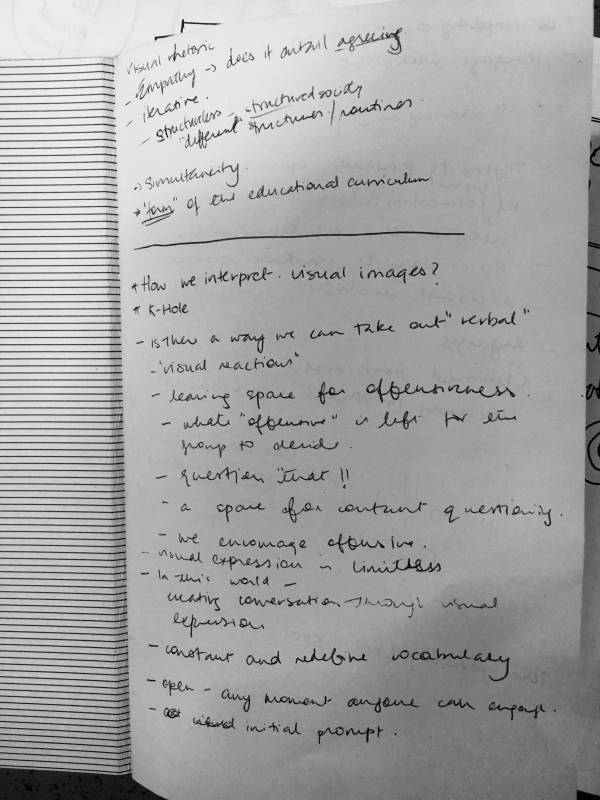 visual rhetoric
- Empathy → does it entail agreeing
- iterative.
- structureless - structured society
"different" structures / routines
→ Simultaneity.
→ "form" of the educational curriculum
* How we interpret. visual images?
* K-Hole
- is there a way we can take out "verbal"
- "visual reactions"
- leaving space for offensiveness.
- what's "offensive" is left for the
group to decide.
- question "that!!
- a space for constant questioning.
- we encourage offensive.
- visual expression is limitless
- In this world -
creating conversation through visual
expression
- constant and redefine vocabulary
- open - any moment anyone can engage.
- initial prompt.